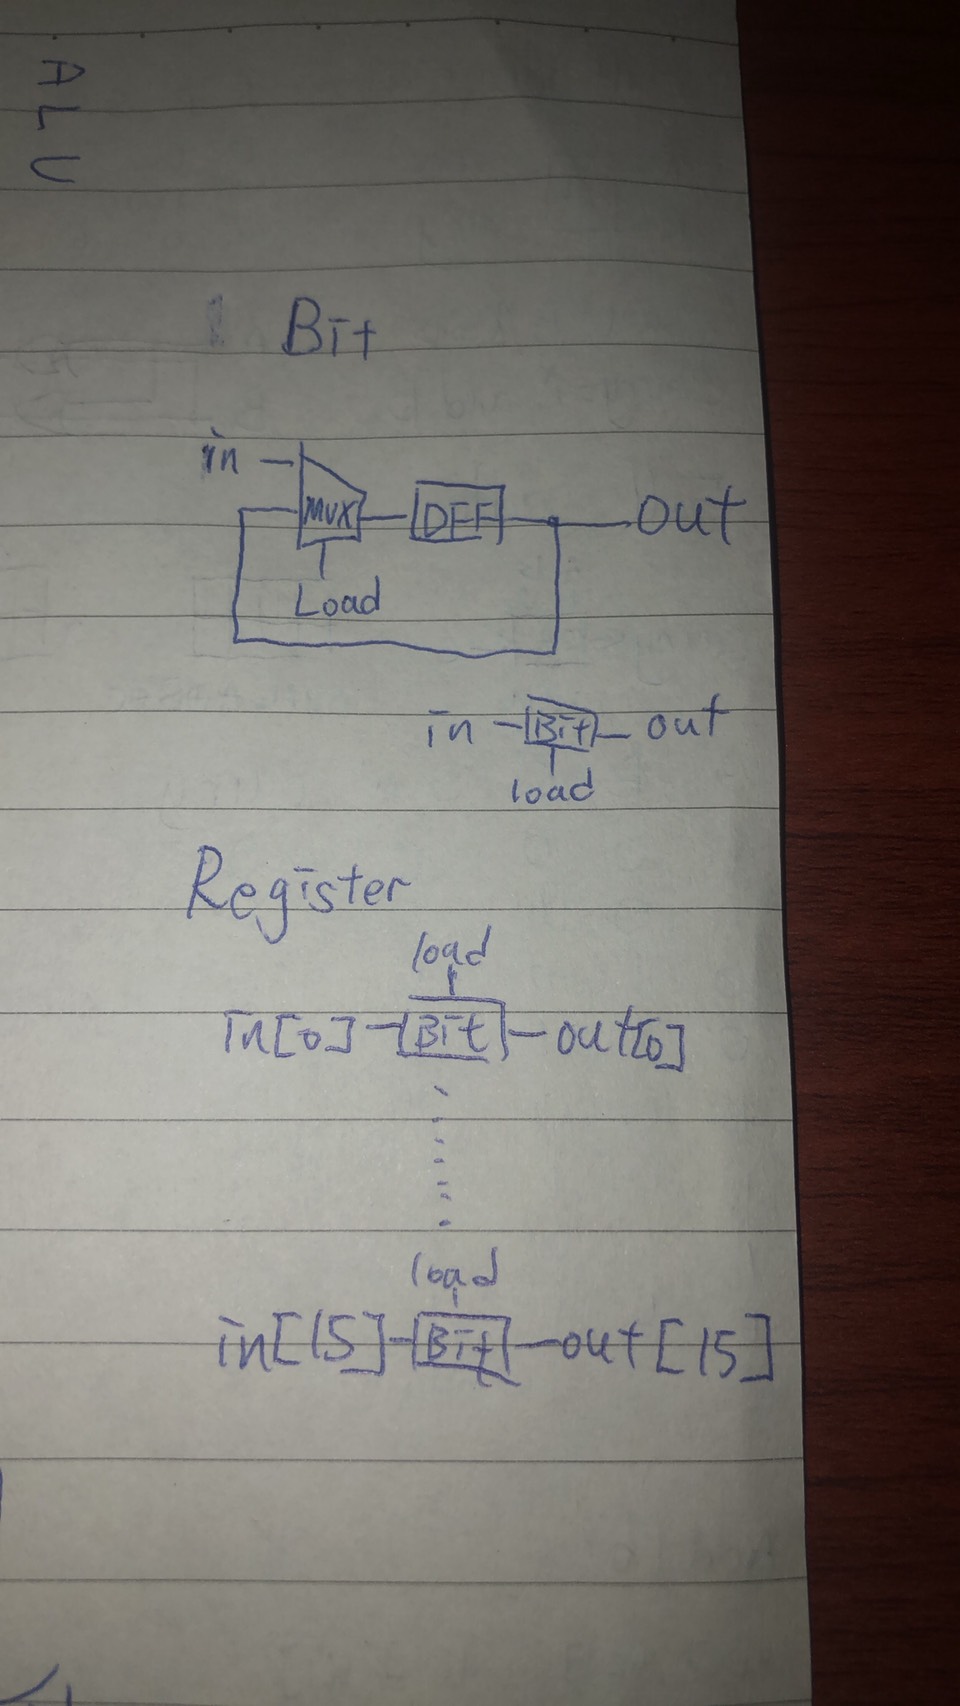 ALU
Bit
in
MUX
DFF
out
Load
in Bit out
load
Register
load
in[0] Bit out[0]
load
in[15] Bit out[15]